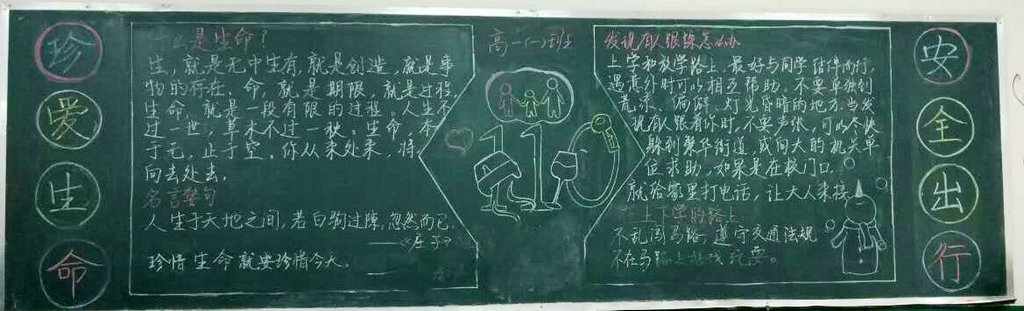 珍
爱
生
命
什么是生命？
生，就是无中生有，就是创造，就是事
物的存在。命，就是期限，就是过程。
生命，就是一段有限的过程。人生不
过一世，草木不过一秋。生命，
于无，止于空。你从来处来，将
向去处去。
名言警句
人生于天地之间，若白驹过隙，忽然而已。
——《庄子》
珍惜生命就要珍惜今天。
高一(一)班
110
发现有人跟踪怎么办
上学和放学路上，最好与同学结伴而行，
遇意外时可以相互帮助。不要单独到
荒凉、偏僻、灯光昏暗的地方。当发
现有人跟着你时，不要声张，可以尽快
躲到繁华街道，或向大的机关单
位求助，如果是在校门口，
就给家里打电话，让大人来接。
在上下学的路上
不乱闯马路，遵守交通法规
不在马路上游戏玩耍。
安
全
出
行